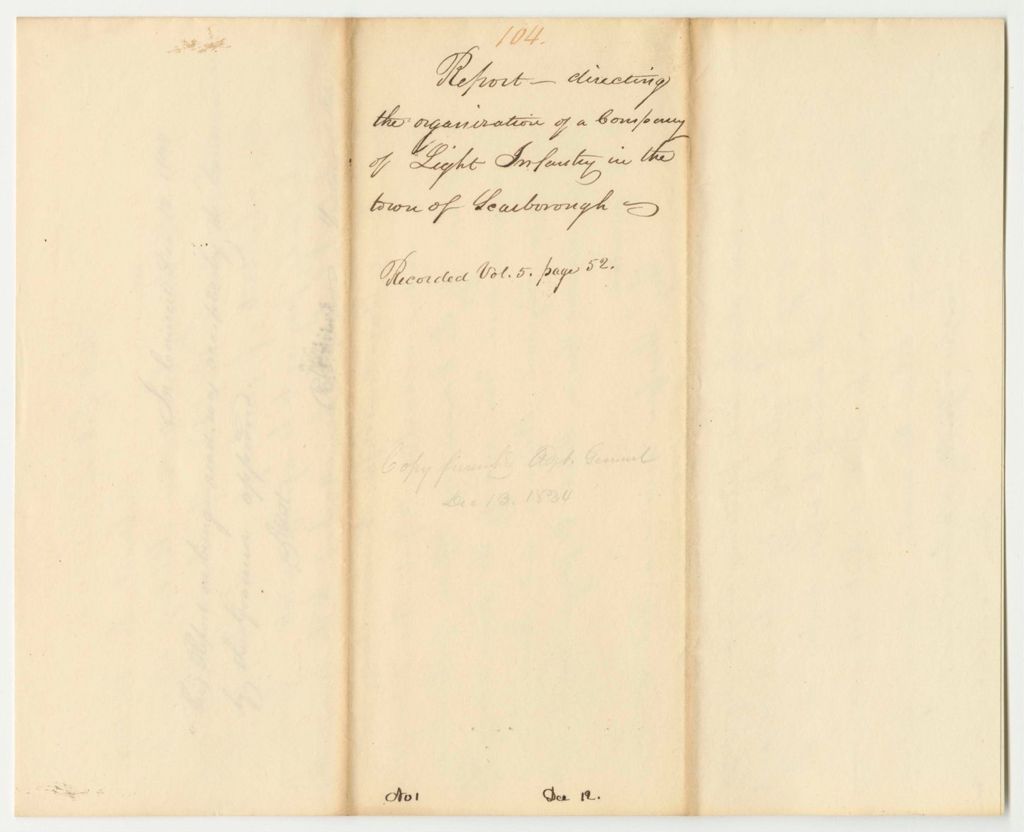 104.
Report — directing
the organization of a Company
of Light Infantry in the
town of Scarborough
Recorded Vol. 5. page 52.
Copy Adjt. General
Dec 13. 1834
No 1 Dec 12.